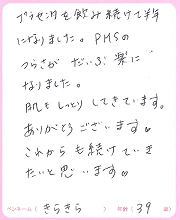 プラセンタを飲み続けて半年
になりました。PMSの
つらさが だいぶ 楽に
なりました。
肌もしっとりしてきています。
ありがとうございます♥
これからも続けていき
たいと思います♥
ペンネーム( きらきら ) 年齢( 39 歳)